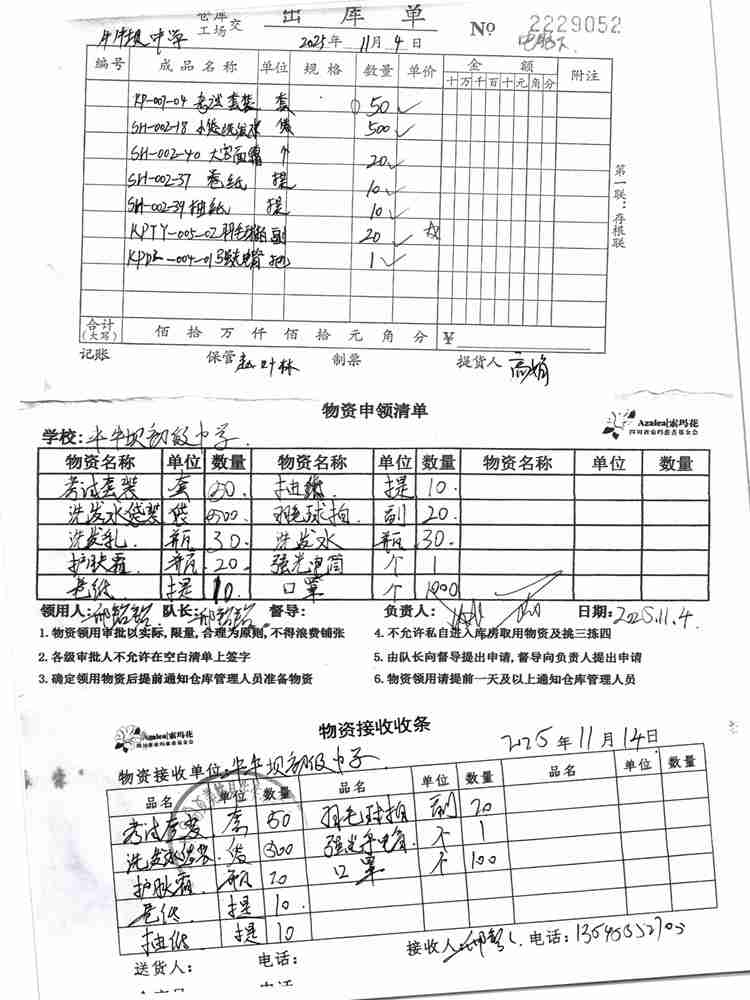 仓库
工场 交 出 库 单 No 2229052
牛牛坝中学 2025年 11月 4日
编号 成品名称 单位 规格 数量 单价 金额 附注
十万千百十元角分
KP-007-04 考试套装 套 50
SH-002-18 袋 500
SH-002-40 大宝面霜 个 20
SH-002-37 卷纸 提 10
SH-002-39 抽纸 提 10
KPTY-005-02 羽毛球拍 副 20
强光电筒 把 1
第一联：存根联
合计
(大写) 佰 拾 万 仟 佰 拾 元 角 分 ¥
记账 保管 制票 提货人 高娟
物资申领清单
Azalea|索玛花
四川西索玛慈善基金会
学校: 牛牛坝初级中学
物资名称 单位 数量 物资名称 单位 数量 物资名称 单位 数量
考试套装 套 50. 抽纸 提 10.
洗发水袋装 袋 500. 羽毛球拍 副 20.
洗发乳. 瓶 30. 洗发水 瓶 30.
护肤霜 瓶 20. 强光电筒 个 1
卷纸 提 10. 口罩 个 1000
领用人: 队长: 督导: 负责人: 日期: 2025.11.4.
1. 物资领用审批以实际, 限量, 合理为原则, 不得浪费铺张 4. 不允许私自进入库房取用物资及挑三拣四
2. 各级审批人不允许在空白清单上签字 5. 由队长向督导提出申请, 督导向负责人提出申请
3. 确定领用物资后提前通知仓库管理人员准备物资 6. 物资领用请提前一天及以上通知仓库管理人员
Azalea|索玛花
物资接收收条
2025年11月14日
物资接收单位: 牛牛坝初级中学
品名 单位 数量 品名 单位 数量 品名 单位 数量
考试套装 套 50 羽毛球拍 副 20
洗发水袋装 袋 500 强光手电筒. 个 1
护肤霜. 瓶 20 口罩 个 100
卷纸. 提 10.
抽纸. 提 10
送货人: 电话: 接收人: 电话: